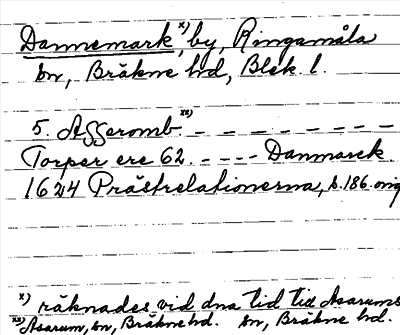 Dannemark,ˣ⁾ by, Ringamåla
sn, Bräkne hd, Blek. l.
5. Asseromb.ˣˣ⁾ – – – – – – – –
Torper ere 62. – – – – Danmarck
1624 Prästrelationerna, s. 186. orig
ˣ⁾ räknades vid dna tid till Asarums
ˣˣ⁾ Asarum, sn, Bräkne hd. sn, Bräkne hd.